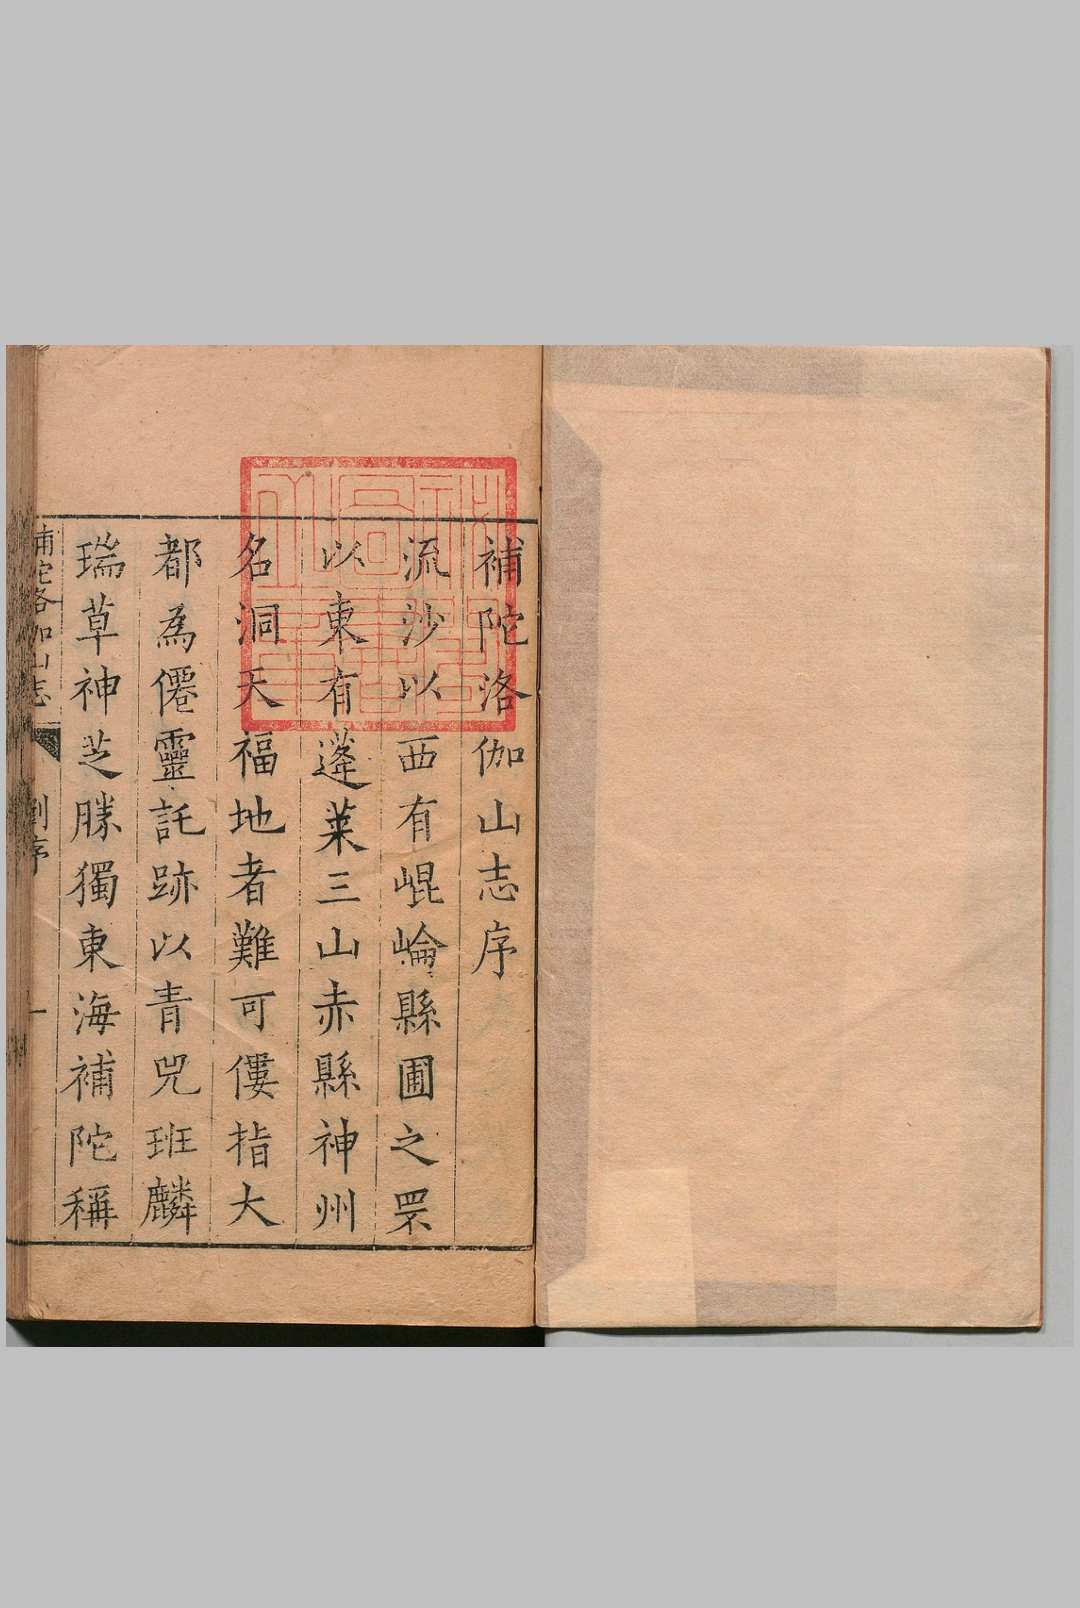 補陀洛伽山志序
流沙以西有崐崘縣圃之罘
以東有蓬萊三山赤縣神州
名洞天福地者難可僂指大
都為僊靈託跡以青兕班麟
瑞草神芝勝獨東海補陀稱
補陀洛伽山志
劉序
一